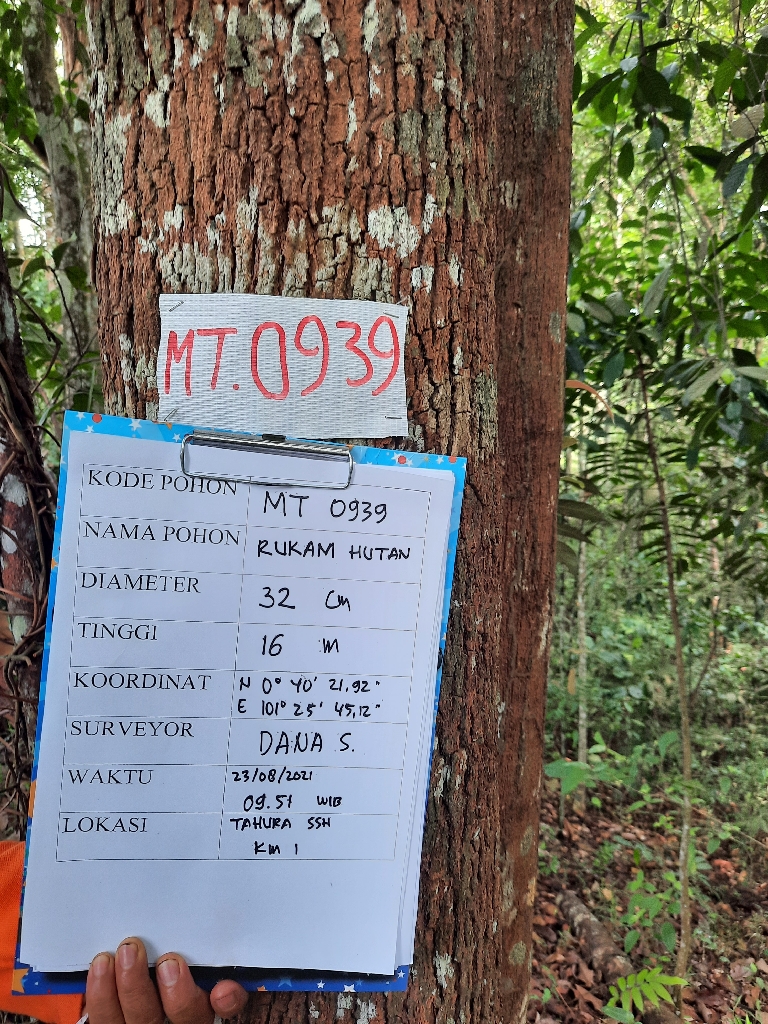 MT.0939
KODE POHON MT 0939
NAMA POHON RUKAM HUTAN
DIAMETER 32 Cm
TINGGI 16 m
KOORDINAT N 0° 40' 21,92"
E 101° 25' 45,12"
SURVEYOR DANA S.
WAKTU 23/08/2021
09.51 WIB
LOKASI TAHURA SSH
Km 1